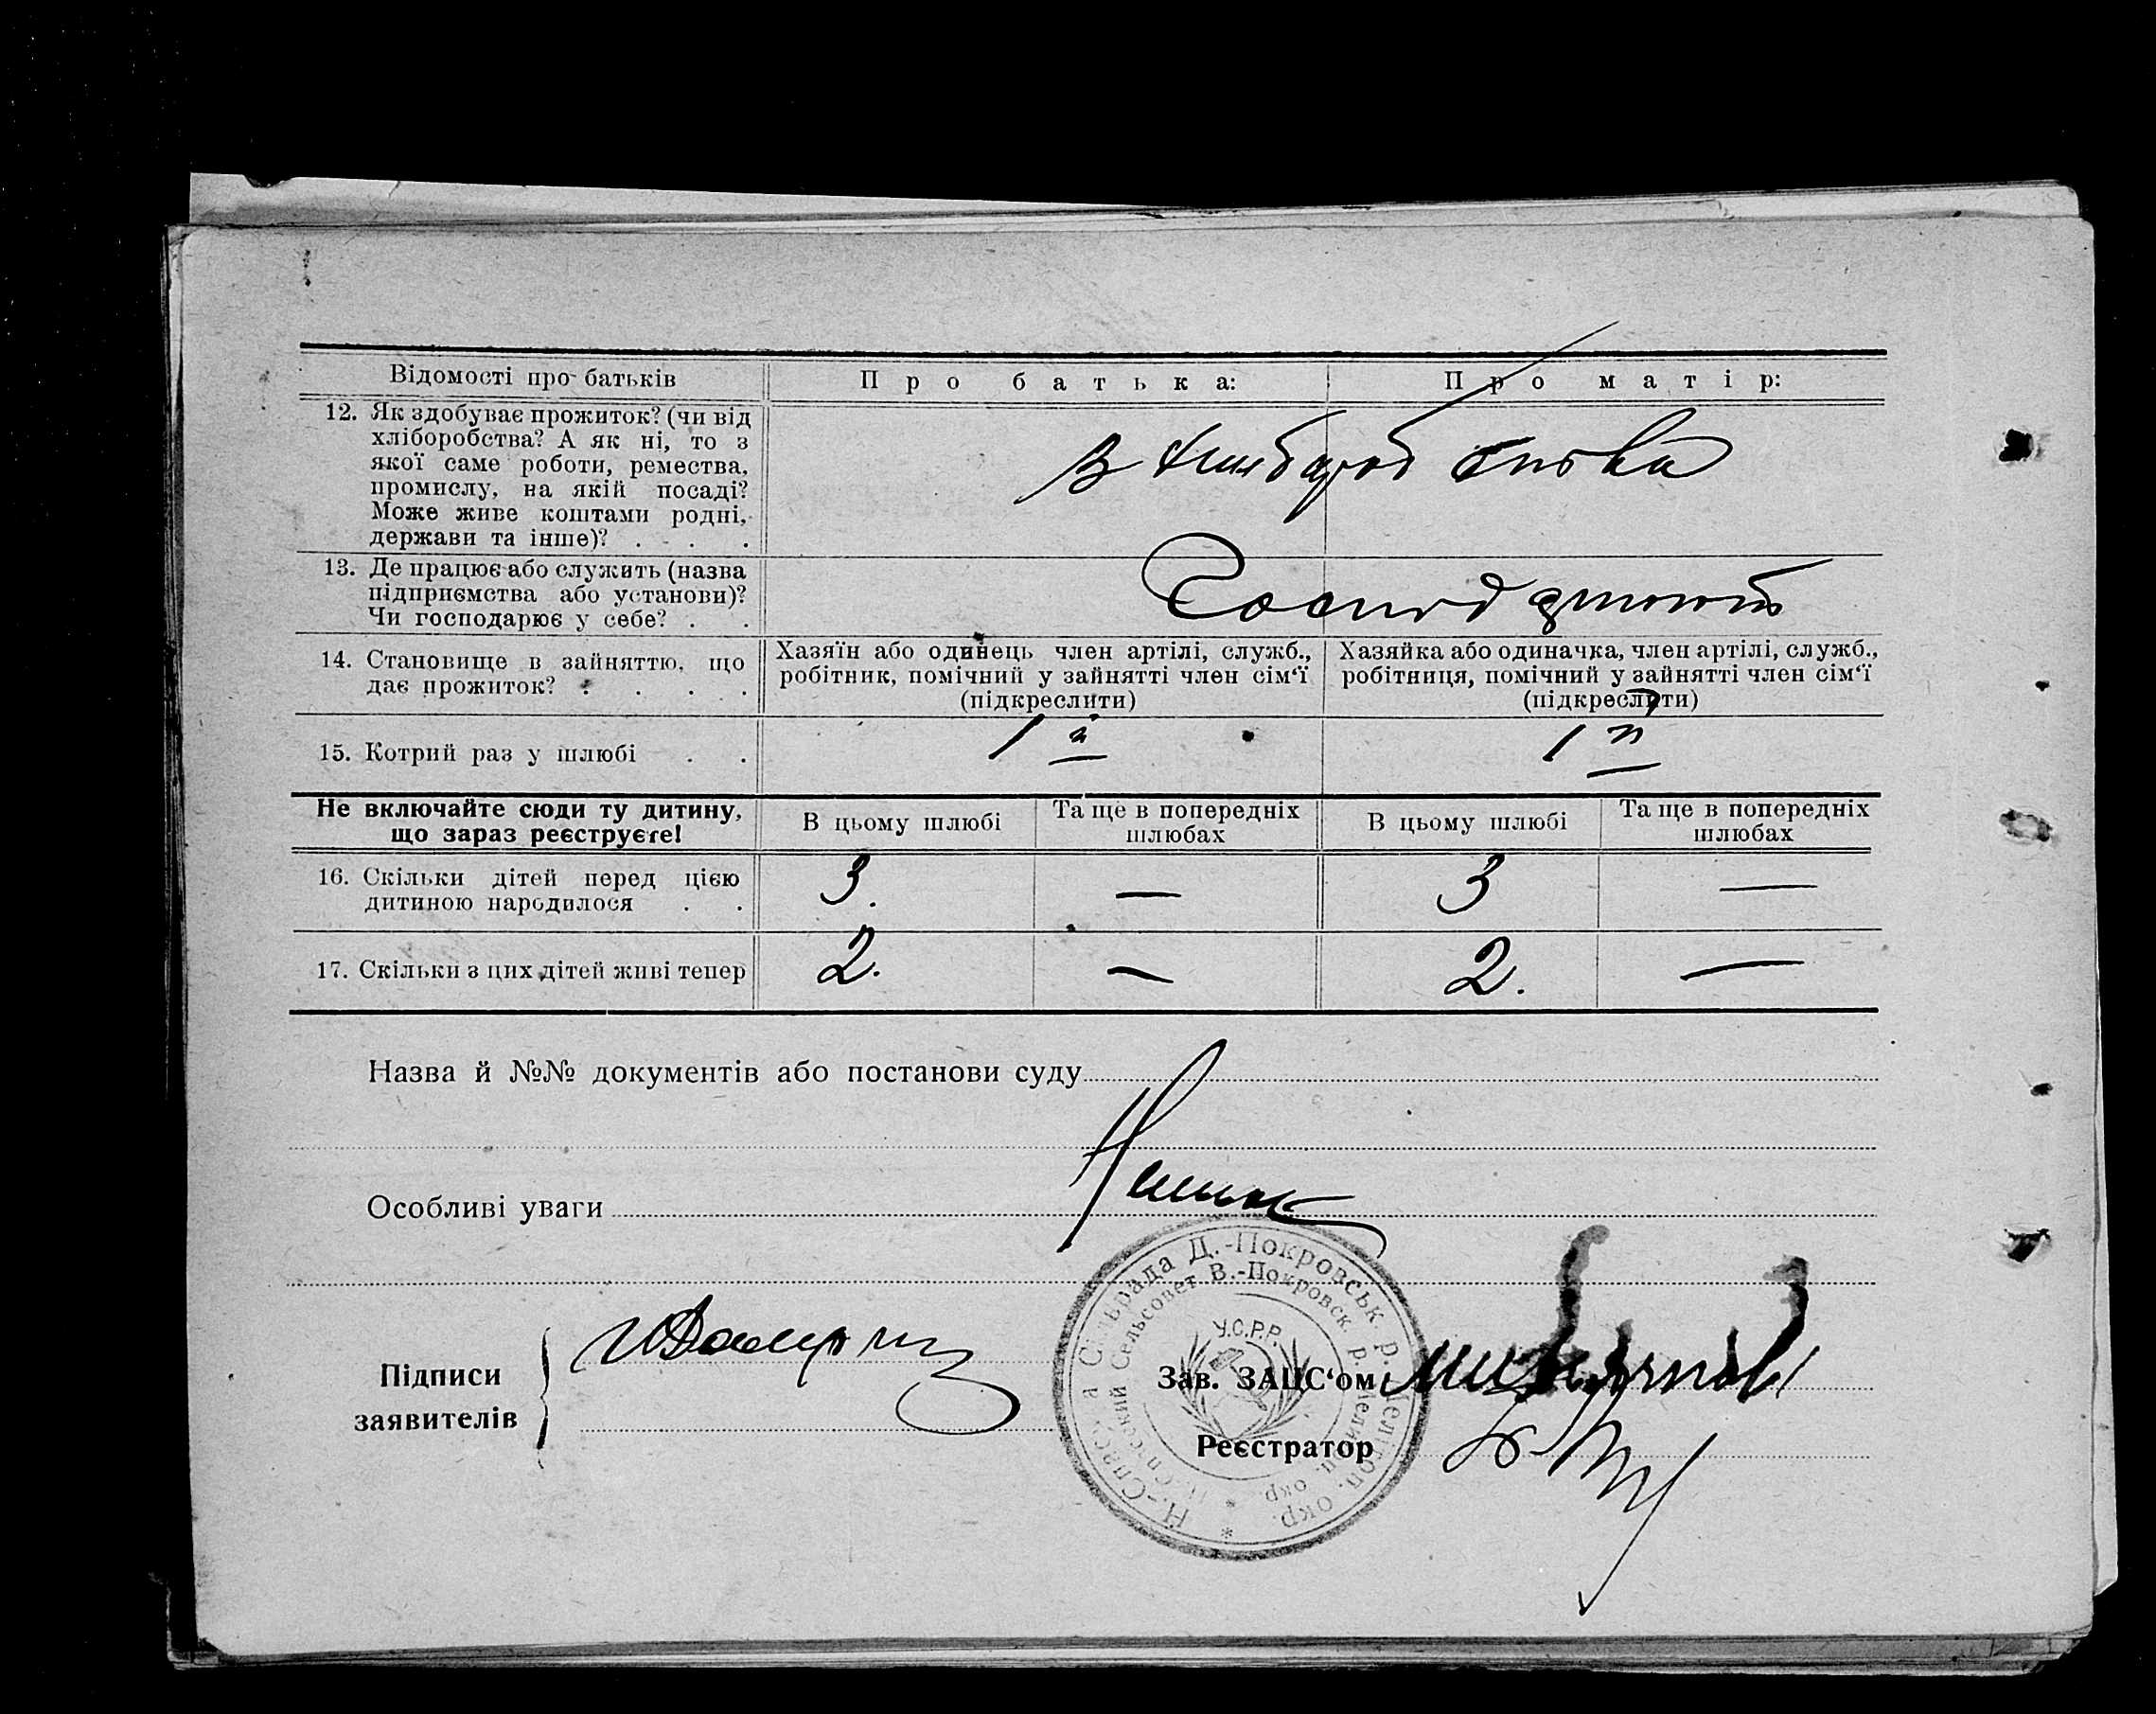 Відомості про батьків
Про батька:
Про матір:
12. Як здобуває прожиток? (чи від
хліборобства? А як ні, то з
якої саме роботи, ремества,
промислу, на якій посаді?
Може живе коштами родні,
держави та інше)? . . .
з хліборобства
13. Де працює або служить (назва
підприємства або установи)?
Чи господарює у себе? . .
14. Становище в зайняттю, що
дає прожиток? . . . .
Хазяїн або одинець член артілі, служб.,
робітник, помічний у зайнятті член сім'ї
(підкреслити)
Хазяйка або одиначка, член артілі, служб.,
робітниця, помічний у зайнятті член сім'ї
(підкреслити)
15. Котрий раз у шлюбі . .
1й
1й
Не включайте сюди ту дитину,
що зараз реєструєте!
В цьому шлюбі
Та ще в попередніх
шлюбах
В цьому шлюбі
Та ще в попередніх
шлюбах
16. Скільки дітей перед цією
дитиною народилося . .
3. — 3 —
17. Скільки з цих дітей живі тепер
2. — 2. —
Назва й №№ документів або постанови суду
Особливі уваги
Підписи
заявителів
Зав. ЗАЦС'ом
Реєстратор
Н.-Спаська Сільрада Д.-Покровськ. р. Мелітоп. окр.
Н.-Спасский Сельсовет В.-Покровск. р. Мелитоп. окр.
У.С.Р.Р.